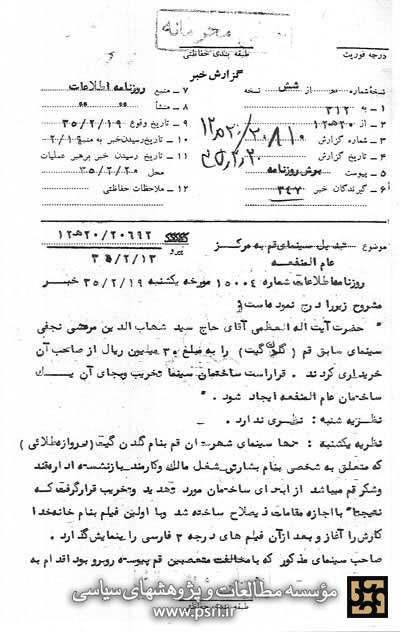 محرمانه
درجه فوریت
طبقه بندی حفاظتی
گزارش خبر
نسخه شماره از شش نسخه
۱ ــ به ۳۱۲
۲ ــ از ۲۰ه‍ ۱۲
۳ ــ شماره گزارش
۴ ــ تاریخ گزارش
۵ ــ پیوست برش روزنامه
۶ ــ گیرندگان خبر ۳۴۷
۷ ــ منبع روزنامه اطلاعات
۸ ــ منشأ
۹ ــ تاریخ وقوع ۳۵/۲/۱۹
۱۰ ــ تاریخ رسیدن خبر به منبع ۲/۱۹
۱۱ ــ تاریخ رسیدن خبر برهبر عملیات
محل ۳۵/۲/۲۰
۱۲ ــ ملاحظات حفاظتی
موضوع تبدیل سینمای قم به مرکز
عام المنفعه
پیرو ۲۰۶۹۲/۲۰ه‍ ۱۲
۳۵/۲/۱۳
روزنامه اطلاعات شماره ۱۵۰۰۴ مورخه یکشنبه ۳۵/۲/۱۹ خبر
مشروح زیر را درج نموده است :
" حضرت آیت اله العظمی آقای حاج سید شهاب الدین مرعشی نجفی
سینمای سابق قم ( گلدن گیت ) را به مبلغ ۳۰ میلیون ریال از صاحب آن
خریداری کردند . قرار است ساختمان سینما تخریب وبجای آن یک
ساختمان عام المنفعه ایجاد شود . "
نظریه شنبه : نظری ندارد .
نظریه یکشنبه : تنها سینمای شهرستان قم بنام گلدن گیت (دروازه طلائی )
که متعلق به شخصی بنام بشارتی شغل مالک وکارمند بازنشسته اداره قند
وشکر قم میباشد از ابتدای ساختمان مورد تهدید و تخریب قرار گرفت که
نتیجتاً با اجازه مقامات ذیصلاح ساخته شد وبا اولین فیلم بنام خانه خدا
کارش را آغاز و بعد از آن فیلم های درجه ۲ فارسی را بنمایش گذارد .
صاحب سینمای مذکور که با مخالفت متعصبین قم پیوسته روبرو بود اقدام به
مؤسسه مطالعات و پژوهشهای سیاسی
www.psri.ir